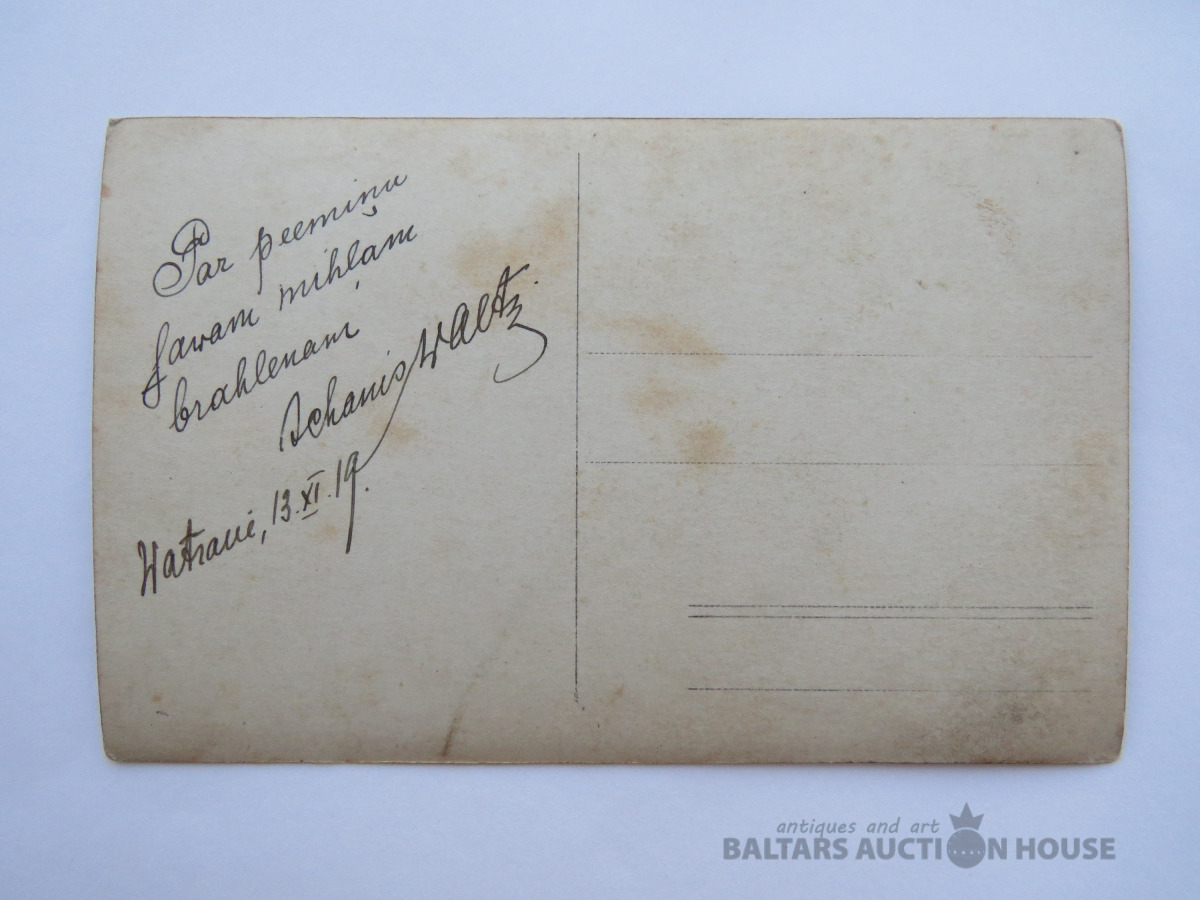 Par peemiņu
ſawam mihļam
brahlenam
Schanis Waltz.
13.XI.19.
antiques and art
BALTARS AUCTION HOUSE